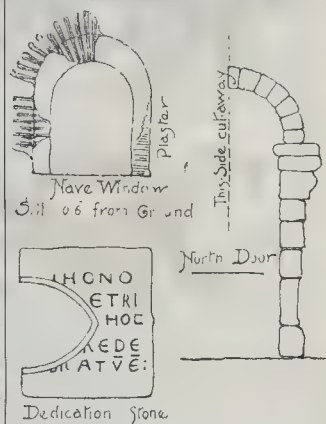 Plaster
Nave Window
from Ground
This Side cut away
North Door
HONO
ETRI
HOC
EDE
ATVE:
Dedication Stone